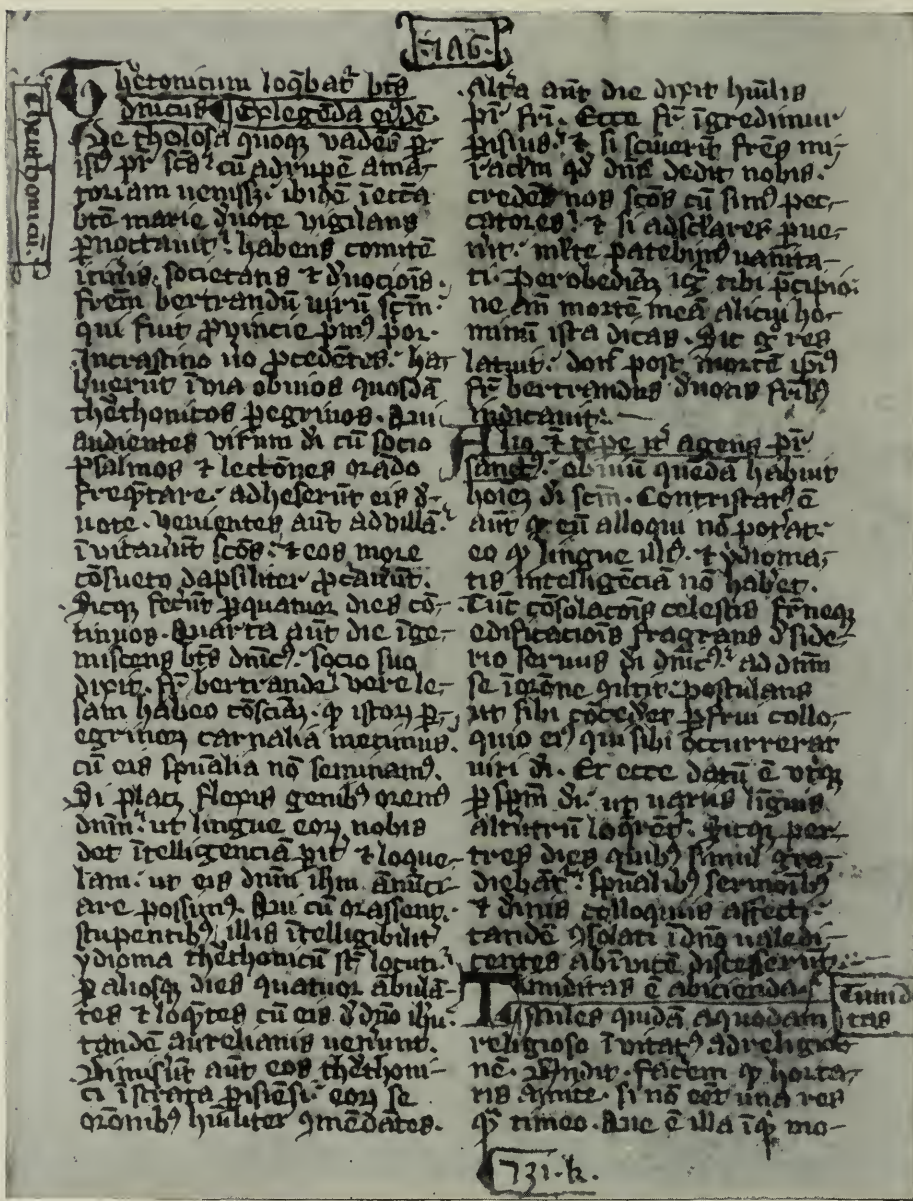 .186.
Theuthonicū.
Thetonicum loq̄bat᷑ bt̄s
dnicus. Ex legēda eiꝰdē
De tholosa quoqꝫ vadēs p̄-
iſiꝰ pr̄ sc̄s. cū ad rupē ama-
toriam uenisſꝫ. ibidē ī eccā
btē marie d̄uote uigilans
ꝑnoctauit. habens comitē
itin̄is. societatis ⁊ d̄uociōis.
fr̄em bertrandū uirū sc̄m.
qui fuit ꝓuincie pmꝰ por.
In crastino uo ꝓcedētes. ha-
buerūt ī via obuios quosdā
thethonicos ꝑegrinos. Qui
audientes virum di cū socio
psalmos ⁊ lectōnes orādo
freq̄ntare. adheserūt eis d̄-
uote. Venientes aūt ad villā.
ī vitauūt sc̄os. ⁊ eos more
cōsueto dapsiliter ꝓcauūt.
Sicqꝫ fecūt ꝑ quatuor dies cō-
tinuos. Quarta aūt die īge-
miscens bt̄s dnicꝰ. socio suo
dixit. fr̄ bertrande vere le-
sam habeo cōsciā. qꝫ istoꝝ ꝑ-
egrinoꝝ carnalia metimus.
cū eis spūalia nō seminamꝰ.
Si placꝫ flexis genibꝰ oremꝰ
dnm. ut lingue eoꝝ nobis
det ītelligenciā pit ⁊ loque-
lam. ut eis dnm ihm ānūci-
are possimꝰ. Qui cū orassent.
stupentibꝰ illis ītelligibilit᷑
ydioma thethonicū st̄ locuti.
ꝑ aliosqꝫ dies quatuor ābulā-
tes ⁊ loq̄ntes cū eis d̄ dn̄o ihu.
tandē aurelianis uenūnt.
Dimisūt aūt eos thethoni-
ci ī strata pisiēsi. eoꝝ se
orōnibꝰ hūiliter ꝯmēdātes.
Alt̄a aūt die dixit hūilis
pr̄ fr̄i. Ecce fr̄ īgredimur
pisius. ⁊ si sciuerīt fr̄es mi-
raclm qd̄ dn̄s dedit nobis.
credēt nos sc̄os cū simꝰ pec-
catores. ⁊ si ad sclares ꝑue-
nīt. ml̄te patebimꝰ uanita-
ti. Per obediāꝫ igr̄ tibi p̄cipio.
ne an̄ mortē meā alicui ho-
minū ista dicas. Sic g̊ res
latuit. donc post mortē ipīꝰ
fr̄ bertrandus d̄uotis fr̄ibꝰ
indicauit.
Alio ⁊ tēpe it᷑ agens pr̄
sanctꝰ. obuiū quēdā habuit
hoiēꝫ di sc̄m. Contristatꝰ ē
aūt qꝫ eū alloqui nō potat.
eo qꝫ lingue illꝰ. ⁊ ydioma-
tis intelligēciā nō habet.
Tūc cōsolacōis celestis fr̄neqꝫ
edificaciōis fragrans d̄side-
rio seruus di dnicꝰ. ad dnm
se ī orōne ꝯuītit. postulans
ut sibi cōcedet ꝑfrui collo-
quio eiꝰ qui sibi occurrerat
uiri di. Et ecce datū ē vtqꝫ
ꝑ spm di. ut uariis liguis
altutrū loq̄ret᷑. Sicqꝫ per
tres dies quibꝰ simul gra-
diebāt᷑. spūalibꝰ sermoībꝰ
⁊ diuis colloquiis affecti.
tandē ꝯsolati ī dn̄o ualedi-
centes ab īuicē discesserūt.
Timiditas ē abicienda.
Timid-
itas
Miles quidā a quodam
religioso īvitatꝰ ad religio-
nē. Rn̄dit. facem qꝫ horta-
ris ainte. si nō eēt una res
quā timeo. Que ē illa īqt mo-
731.k.